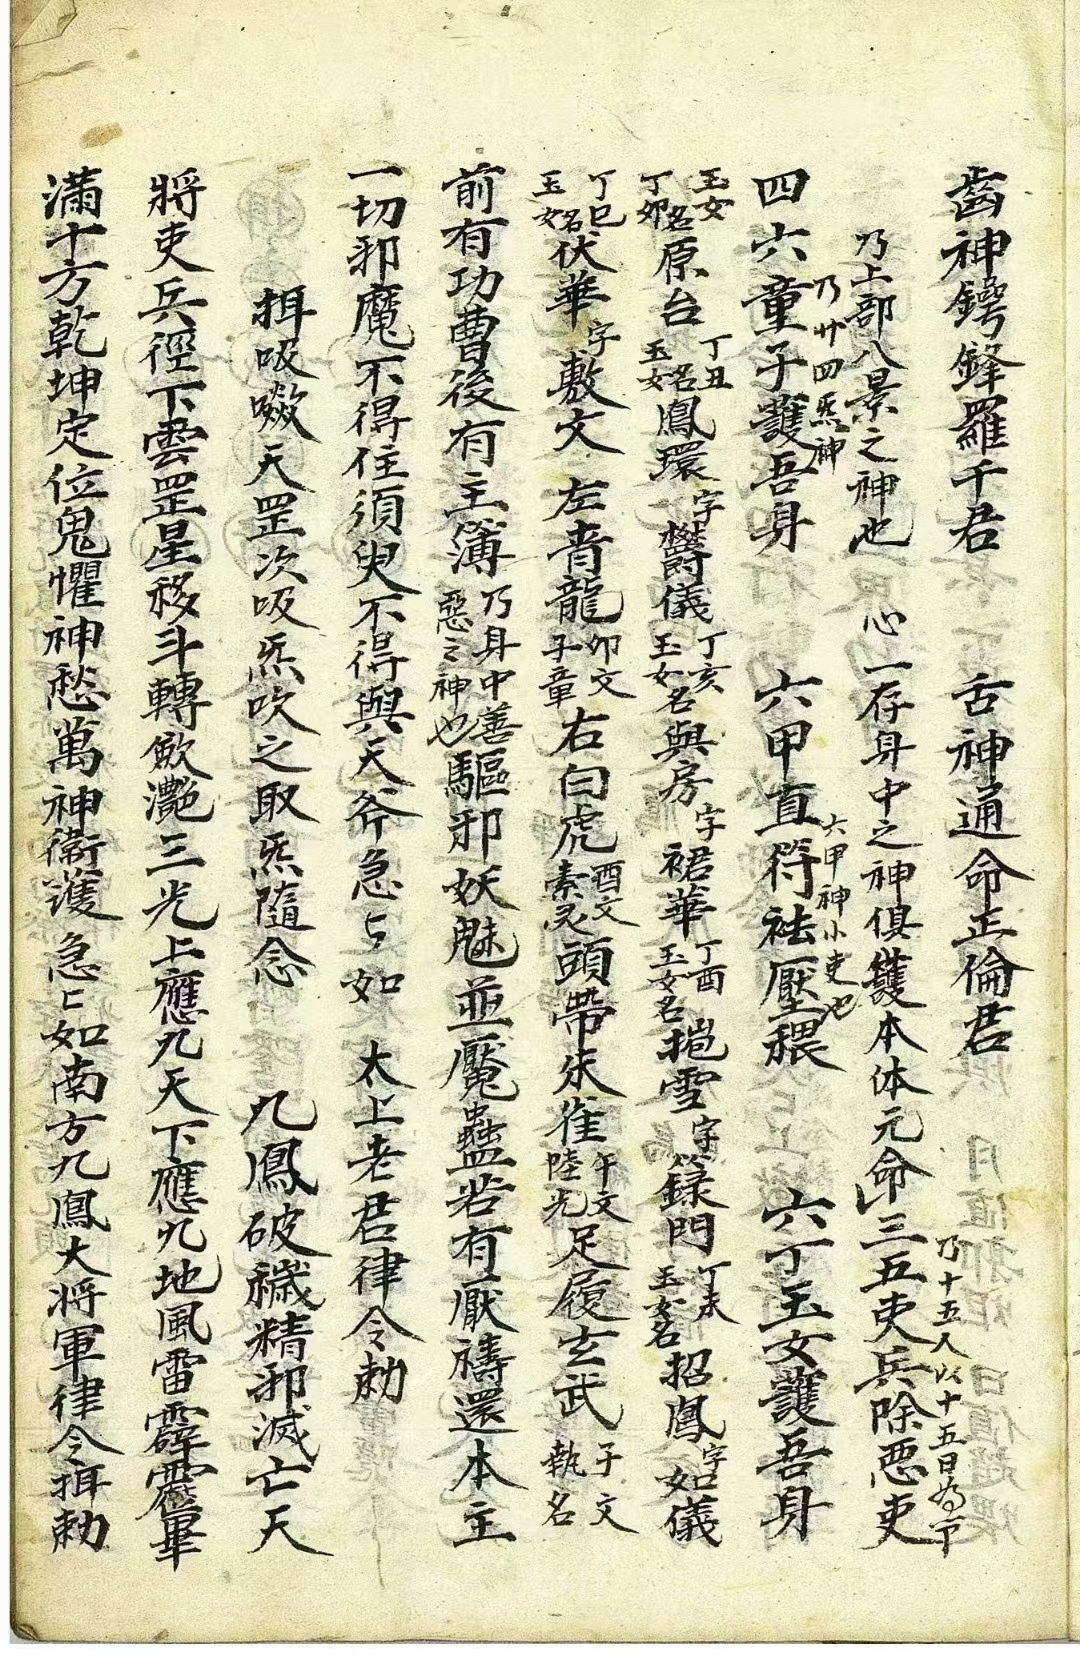 齒神鍔鋒羅千君　舌神通命正倫君
乃上部八景之神也　心一存身中之神俱護本体元命三五吏兵除惡吏乃十五人以十五日為一節
四六童子護吾身乃廿四炁神　六甲直符祛壓穢六甲神小吏也　六丁玉女護吾身
丁卯玉女名原台　丁丑玉女名鳳環字欝儀丁亥玉女名與房字裙華丁酉玉女名抱雪字籙門丁未玉女名招鳳字如儀
丁巳玉女名伏華字敷文　左青龍卯文孟章右白虎酉文素灵頭帶朱雀午文陵光足履玄武子文執名
前有功曹後有主簿乃身中善惡之神也驅邪妖魅並魘蠱若有厭禱還本主
一切邪魔不得住須臾不得與天齐急〻如　太上老君律令勅
挕吸噉天罡次吸炁吹之取炁隨念　九鳳破穢精邪滅亡天
將吏兵徑下雲罡星移斗轉歛灔三光上應九天下應九地風雷霹靂畢
滿十方乾坤定位鬼懼神愁萬神衛護急〻如南方九鳳大将軍律令挕勅